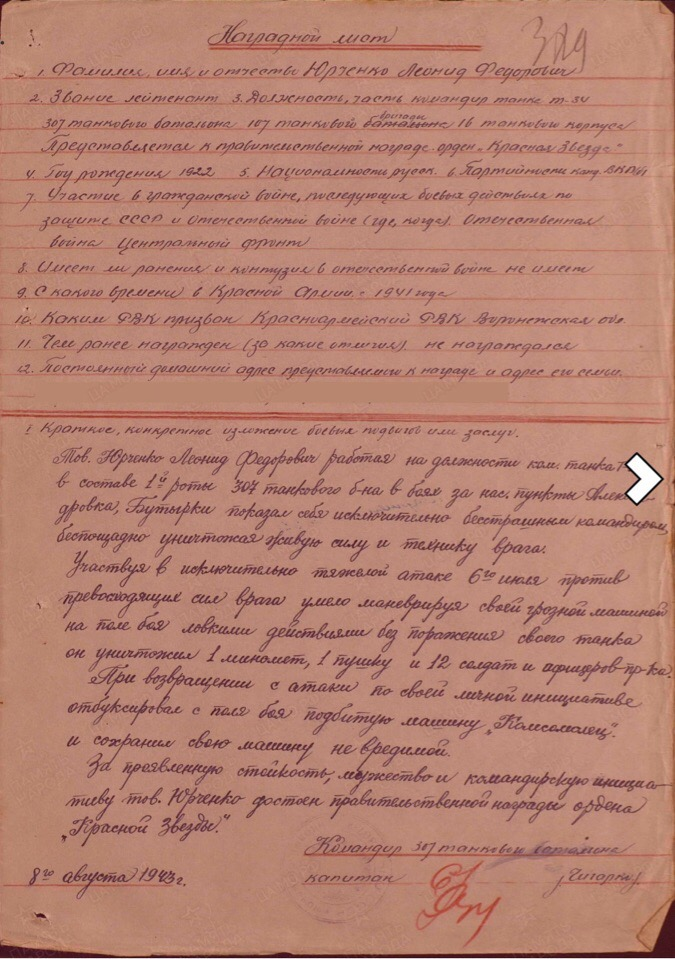 Наградной лист
389
1. Фамилия, имя и отчество Юрченко Леонид Федорович
2. Звание лейтенант 3. Должность, часть командир танка т-34
307 танкового батальона 107 танковой батальона бригады 16 танкового корпуса
Представляется к правительственной награде орден „Красная Звезда"
4. Год рождения 1922 5. Национальность русск. 6 Партийность канд. ВКП/б/
7. Участие в гражданской войне, последующих боевых действиях по
защите СССР и отечественной войне (где, когда). Отечественная
война Центральный фронт
8. Имеет ли ранения и контузия в отечественной войне не имеет
9. С какого времени в Красной Армии с 1941 года
10. Каким РВК призван Красноармейский РВК Воронежская обл.
11. Чем ранее награжден (за какие отличия) не награждался
12. Постоянный домашний адрес представляемого к награде и адрес его семьи.
I Краткое, конкретное изложение боевых подвигов или заслуг.
Тов. Юрченко Леонид Федорович работая на должности ком. танка
в составе 1й роты 307 танкового б-на в боях за нас. пункты
дровка, Бутырки показал себя исключительно бесстрашным командиром,
беспощадно уничтожая живую силу и технику врага.
Участвуя в исключительно тяжелой атаке 6го июля против
превосходящих сил врага умело маневрируя своей грозной машиной
на поле боя ловкими действиями без поражения своего танка
он уничтожил 1 миномет, 1 пушку и 12 солдат и офицеров пр-ка.
При возвращении с атаки по своей личной инициативе
отбуксировал с поля боя подбитую машину „Комсомолец".
и сохранил свою машину не вредимой.
За проявленную стойкость, мужество и командирскую инициа-
тиву тов. Юрченко достоин правительственной награды ордена
„Красной Звезды".
Командир 307 танкового батальона
8го августа 1943 г. капитан /Чигорко/